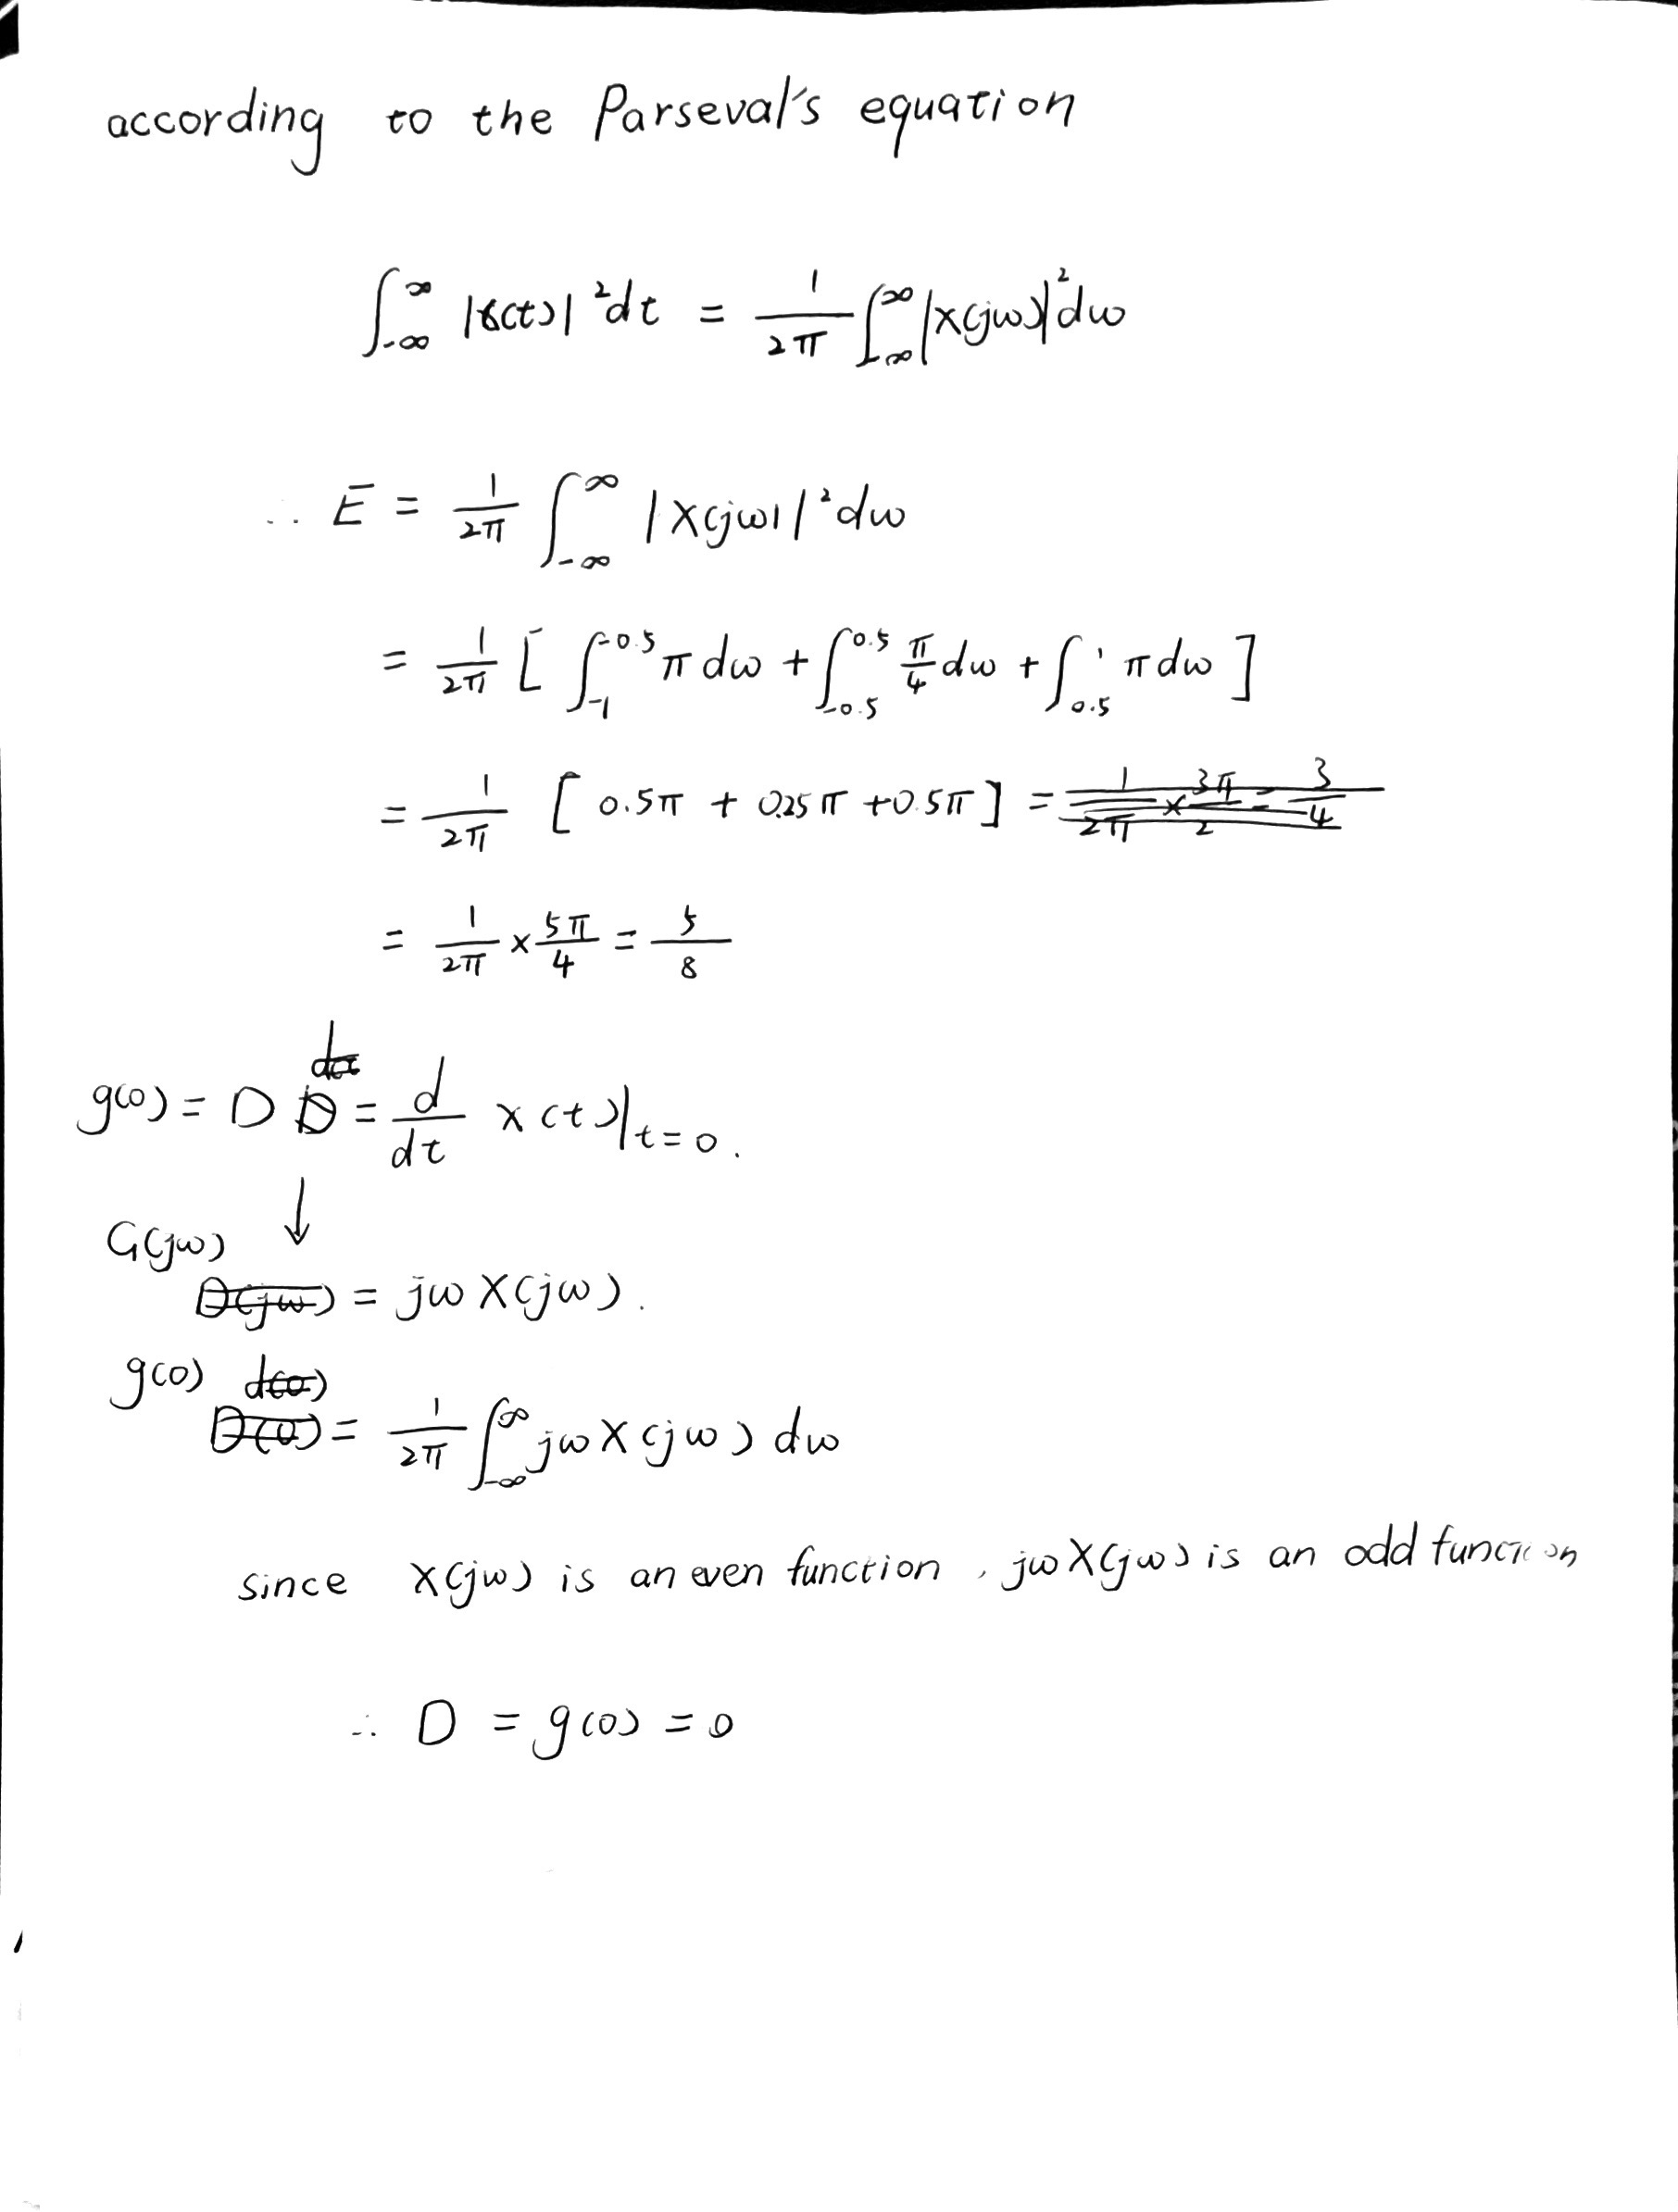 according to the Parseval's equation
∫_{-∞}^{∞} |x(t)|² dt = 1/2π ∫_{-∞}^{∞} |X(jω)|² dω
∴ E = 1/2π ∫_{-∞}^{∞} |X(jω)|² dω
= 1/2π [ ∫_{-1}^{-0.5} π dω + ∫_{-0.5}^{0.5} π/4 dω + ∫_{0.5}^{1} π dω ]
= 1/2π [ 0.5π + 0.25π + 0.5π ] = 1/2π × 3π/2 = 3/4
= 1/2π × 5π/4 = 5/8
g(0) = D D = d/dt x(t)|_{t=0}.
↓
G(jω)
D(jω) = jω X(jω).
g(0) d(0)
D(0) = 1/2π ∫_{-∞}^{∞} jω X(jω) dω
since X(jω) is an even function, jω X(jω) is an odd function
∴ D = g(0) = 0